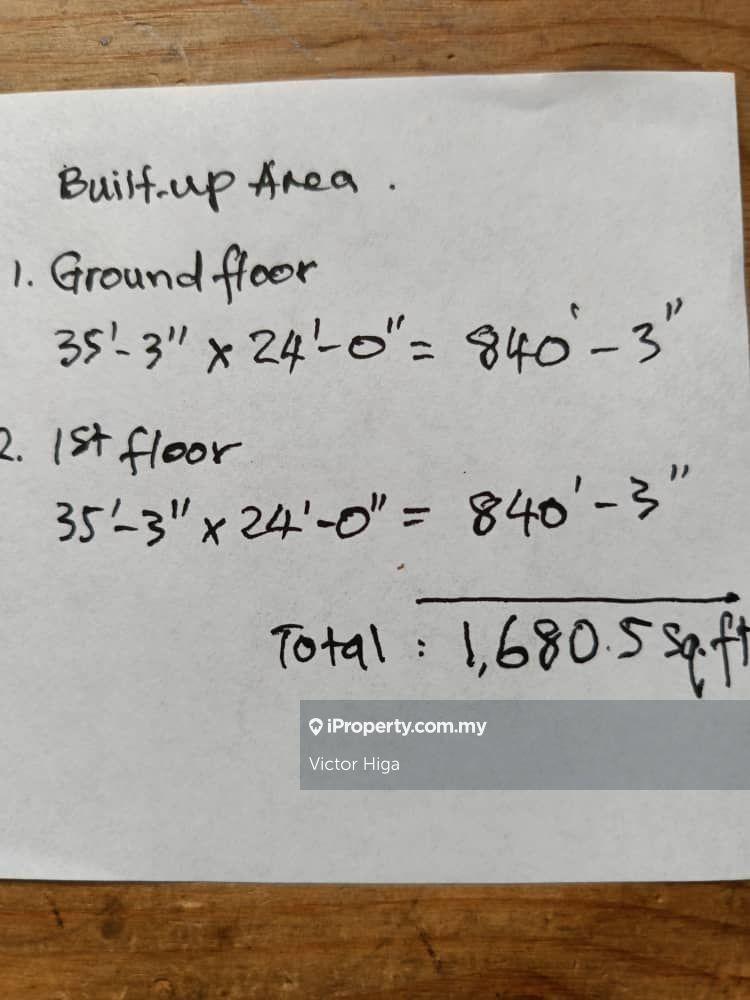 Built-up Area.
1. Ground floor
35'-3" x 24'-0" = 840'-3"
2. 1st floor
35'-3" x 24'-0" = 840'-3"
Total : 1,680.5 Sq.ft
iProperty.com.my
Victor Higa